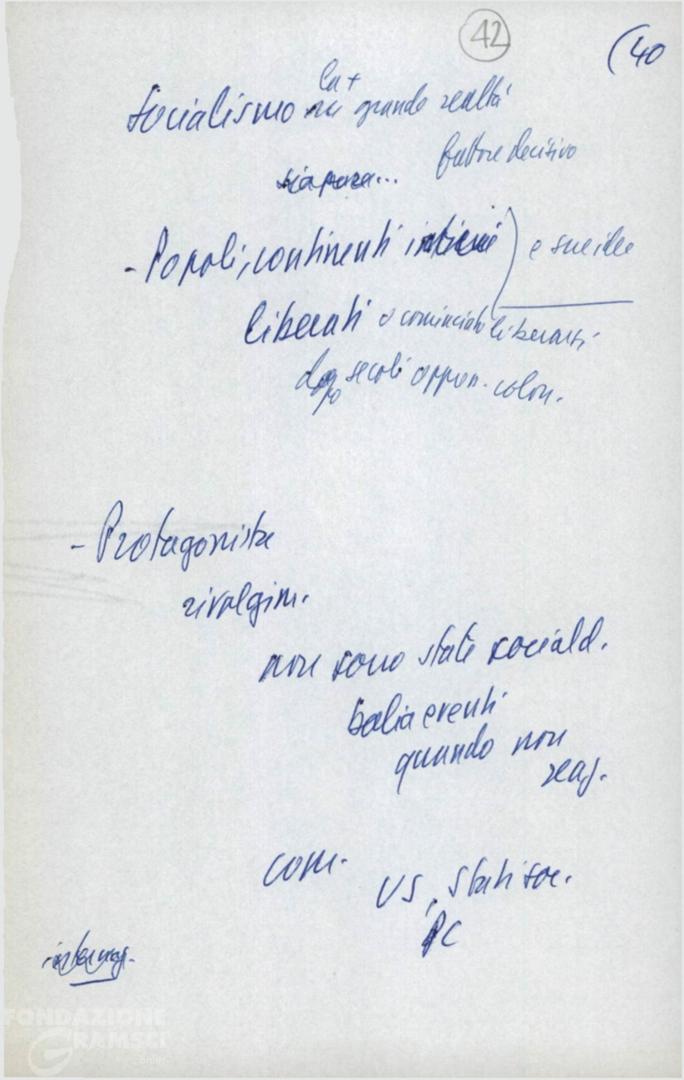 42
(40
la +
Socialismo più grande realtà
fattore decisivo
- Popoli, continenti interi) e sue idee
liberati o cominciato liberarsi
dopo secoli oppon. colon.
- Protagonista
rivolgim.
non sono state sociald.
balia eventi
quando non
reaz.
com.
US, Stati soc.
PC
internaz.
FONDAZIONE
GRAMSCI